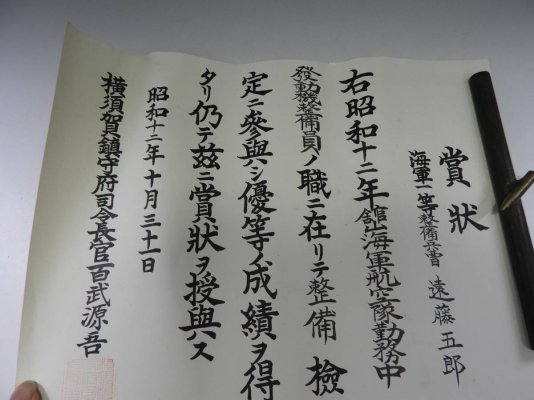 賞狀
海軍一等整備兵曹 遠藤五郎
右昭和十二年館山海軍航空隊勤務中
發動機整備員ノ職ニ在リテ整備檢
定ニ參與シ優等ノ成績ヲ得
タリ仍テ茲ニ賞狀ヲ授與ス
昭和十二年十月三十一日
橫須賀鎮守府司令長官百武源吾